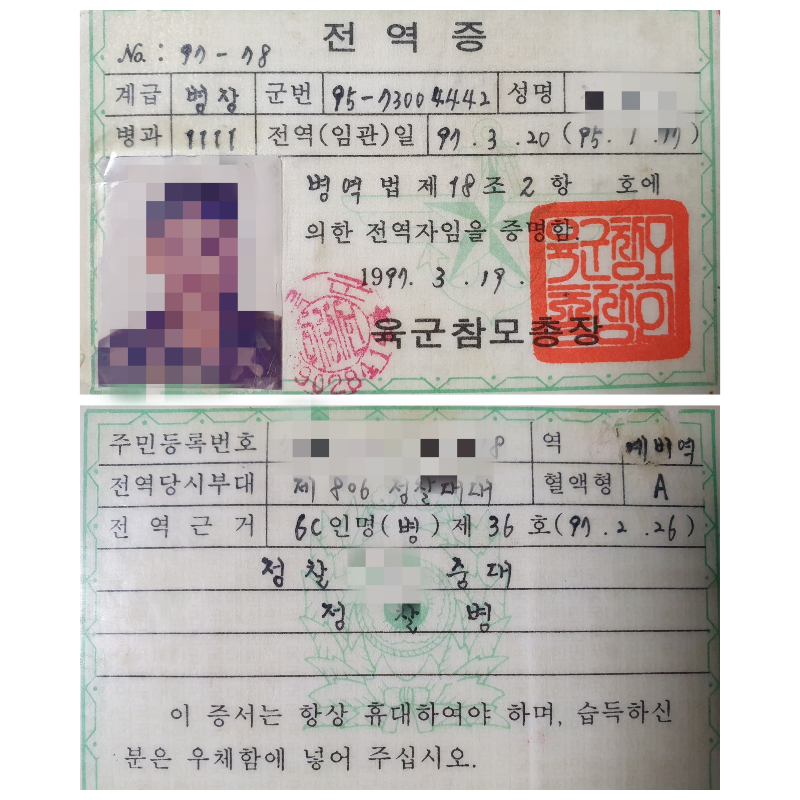 전역증
No. : 97-78
계급 병장 군번 95-73004442 성명
병과 1111 전역(임관)일 97. 3. 20 (95. 1. 17)
병역법 제18조 2항 호에
의한 전역자임을 증명함.
1997. 3. 19.
육군참모총장
육군참모총장
9028
주민등록번호 8 역 예비역
전역당시부대 제 806 정찰대대 혈액형 A
전역근거 6C인명(병) 제 36 호(97. 2. 26)
정찰 중대
정찰병
이 증서는 항상 휴대하여야 하며, 습득하신
분은 우체함에 넣어 주십시오.